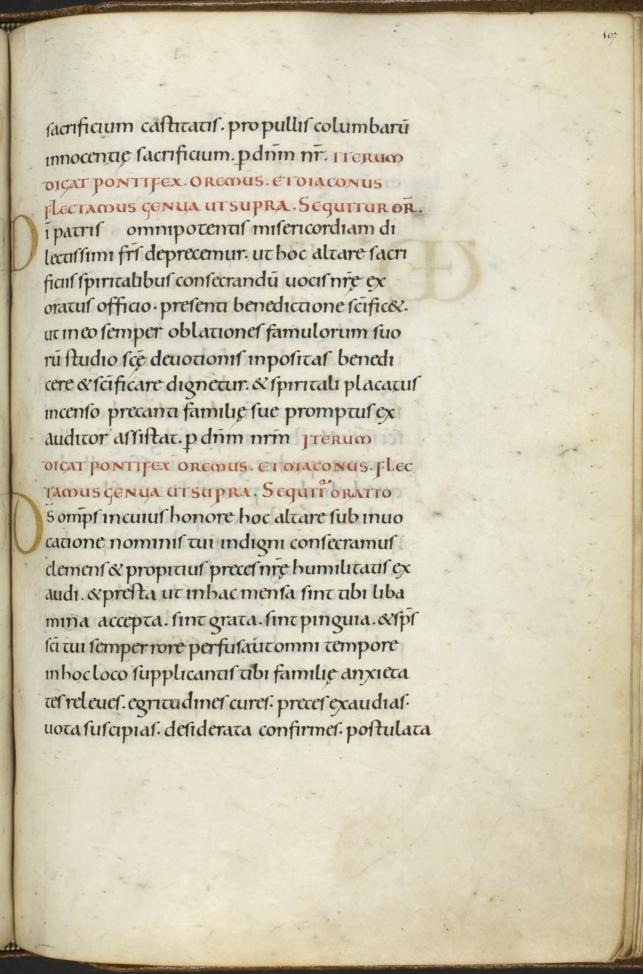 107
sacrificium castitatis. pro pullis columbarū
innocentię sacrificium. p dn̄m nr̄. ITERUM
DICAT PONTIFEX. OREMUS. ET DIACONUS
FLECTAMUS GENUA UT SUPRA. SEQUITUR OR̄.
Dī patris omnipotentis misericordiam di
lectissimi fr̄s deprecemur. ut hoc altare sacri
ficiis spiritalibus consecrandū uocis nr̄ę ex
oratus officio. presenti benedictione sc̄ific&.
ut in eo semper oblationes famulorum suo
rū studio sc̄ę deuotionis inpositas benedi
cere & sc̄ificare dignetur. & spiritali placatus
incenso precanti familię sue promptus ex
auditor assistat. p dn̄m nr̄m ITERUM
DICAT PONTIFEX OREMUS. ET DIACONUS. FLEC
TAMUS GENUA UT SUPRA. SEQUIT̄ ORATIO
Ds̄ omp̄s in cuius honore hoc altare sub inuo
catione nominis tui indigni consecramus
clemens & propitius preces nr̄ę humilitatis ex
audi. & presta ut in hac mensa sint tibi liba
mina accepta. sint grata. sint pinguia. & sp̄s
sc̄i tui semper rore perfusa ut omni tempore
in hoc loco supplicantis tibi familię anxieta
tes releues. egritudines cures. preces exaudias.
uota suscipias. desiderata confirmes. postulata